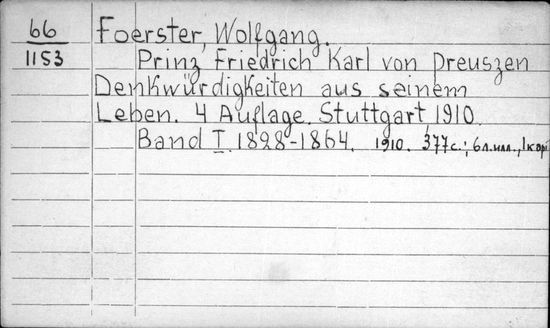 66 Foerster, Wolfgang.
1153 Prinz Friedrich Karl von Preuszen
Denkwürdigkeiten aus seinem
Leben. 4 Auflage. Stuttgart, 1910.
Band I. 1828-1864. 1910. 377с.; 6л.илл.,